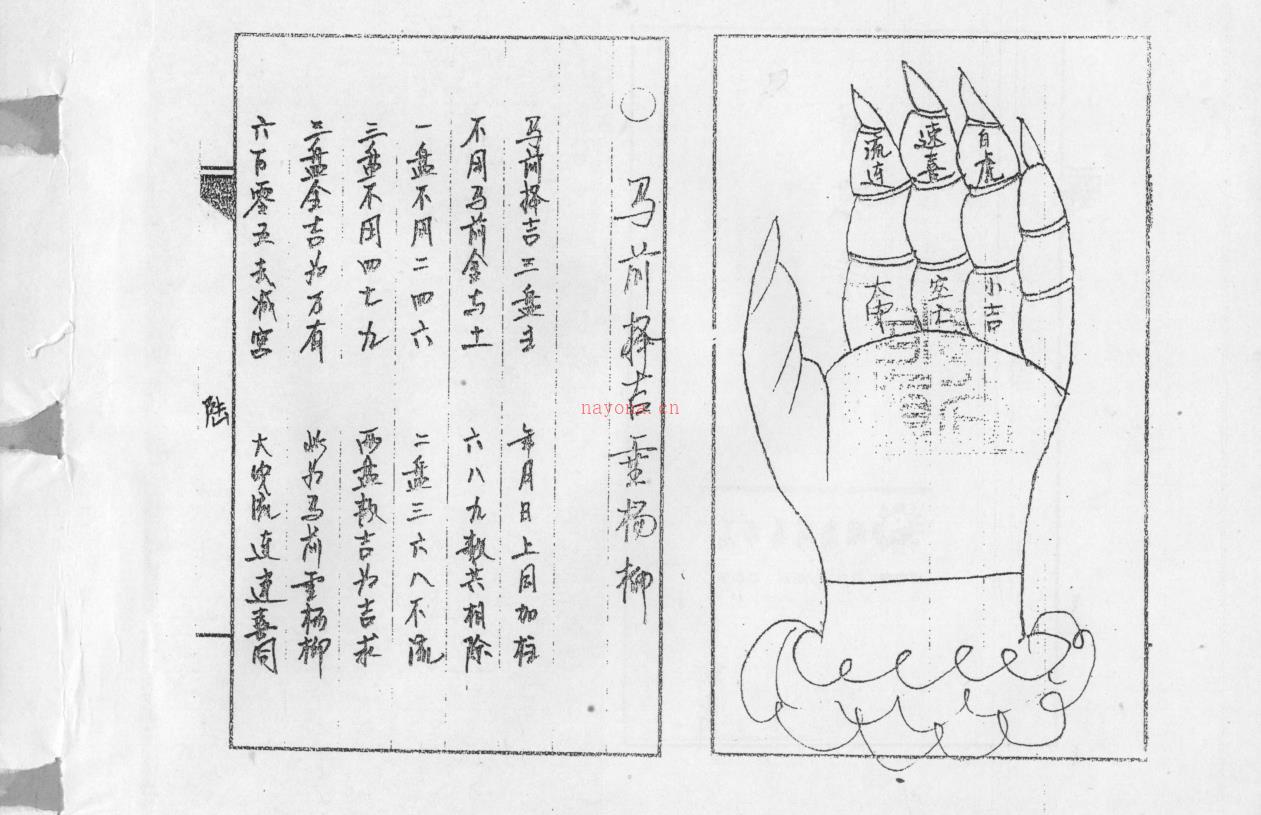 白虎
速喜
流连
小吉
空亡
大申
马前择吉垂杨柳
马前择吉三盘主 年月日上同加柱
不用马前金与土 六八九数共相除
一盘不用二四六 二盘三六八不流
三盘不用四七九 两盘数吉为吉求
三盘全吉为万有 此为马前垂杨柳
六百零五去减宫 大安流连速喜同
陆
nayona.cn